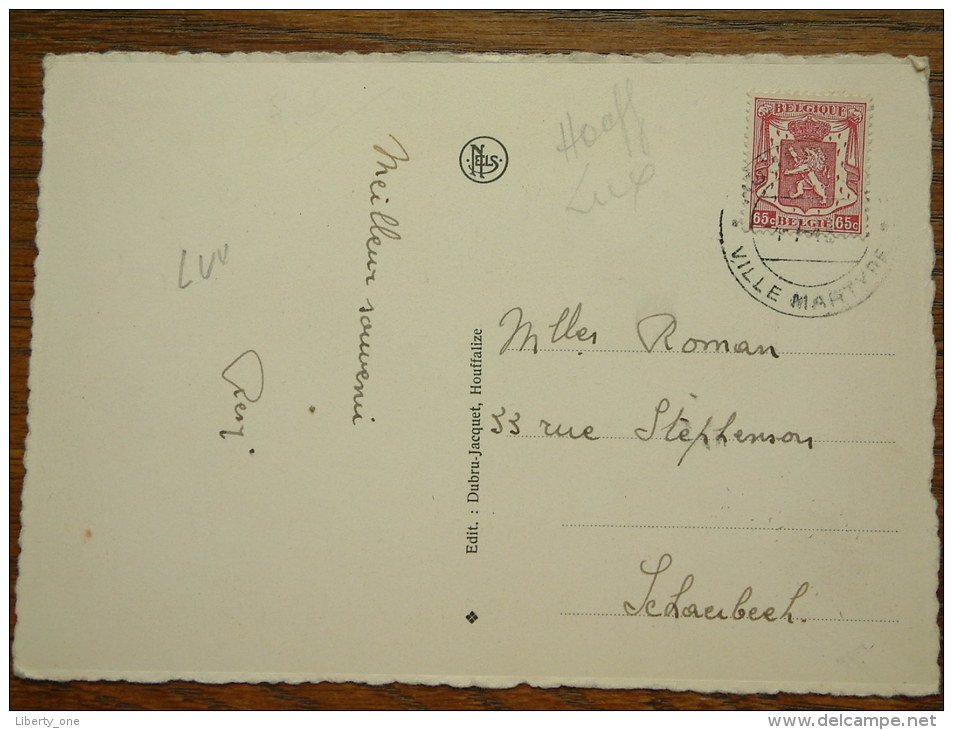 Meilleur souvenir
NELS
Hoeff
Lux
BELGIQUE
65c BELGIË 65c
* VILLE MARTYRE *
Luv
Edit. : Dubru-Jacquet, Houffalize
Mlles Roman
33 rue Stephenson
Schaerbeek.
Liberty_one
http://www.delcampe.net